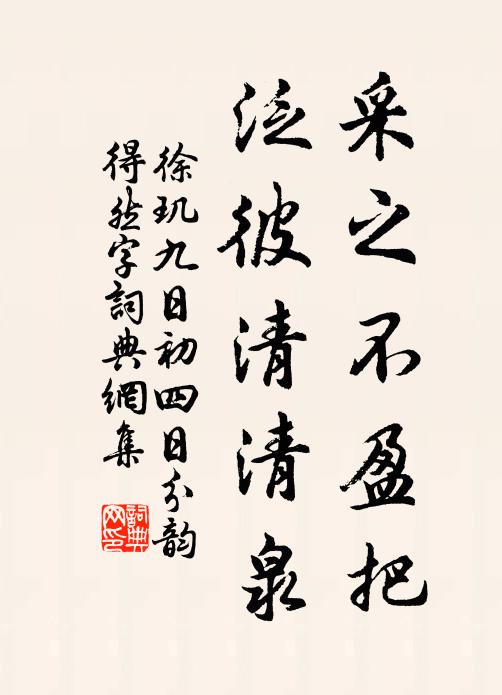 采之不盈把
泛彼清清泉
徐玑九日初四日分韵
得然字詞典網集
詞典
网印